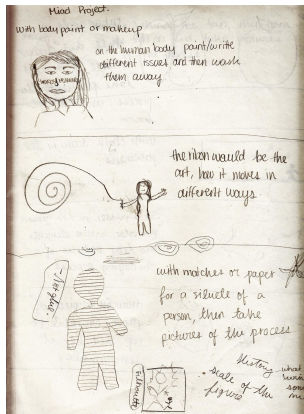 Miad Project.
With body paint or makeup
on the human body paint/write
different issues and then wash
them away
the ribon would be the
art, how it moves in
different ways
with matches or paper
for a siluele of a
person, then take
pictures of the process
History
• scale of the
figure
what